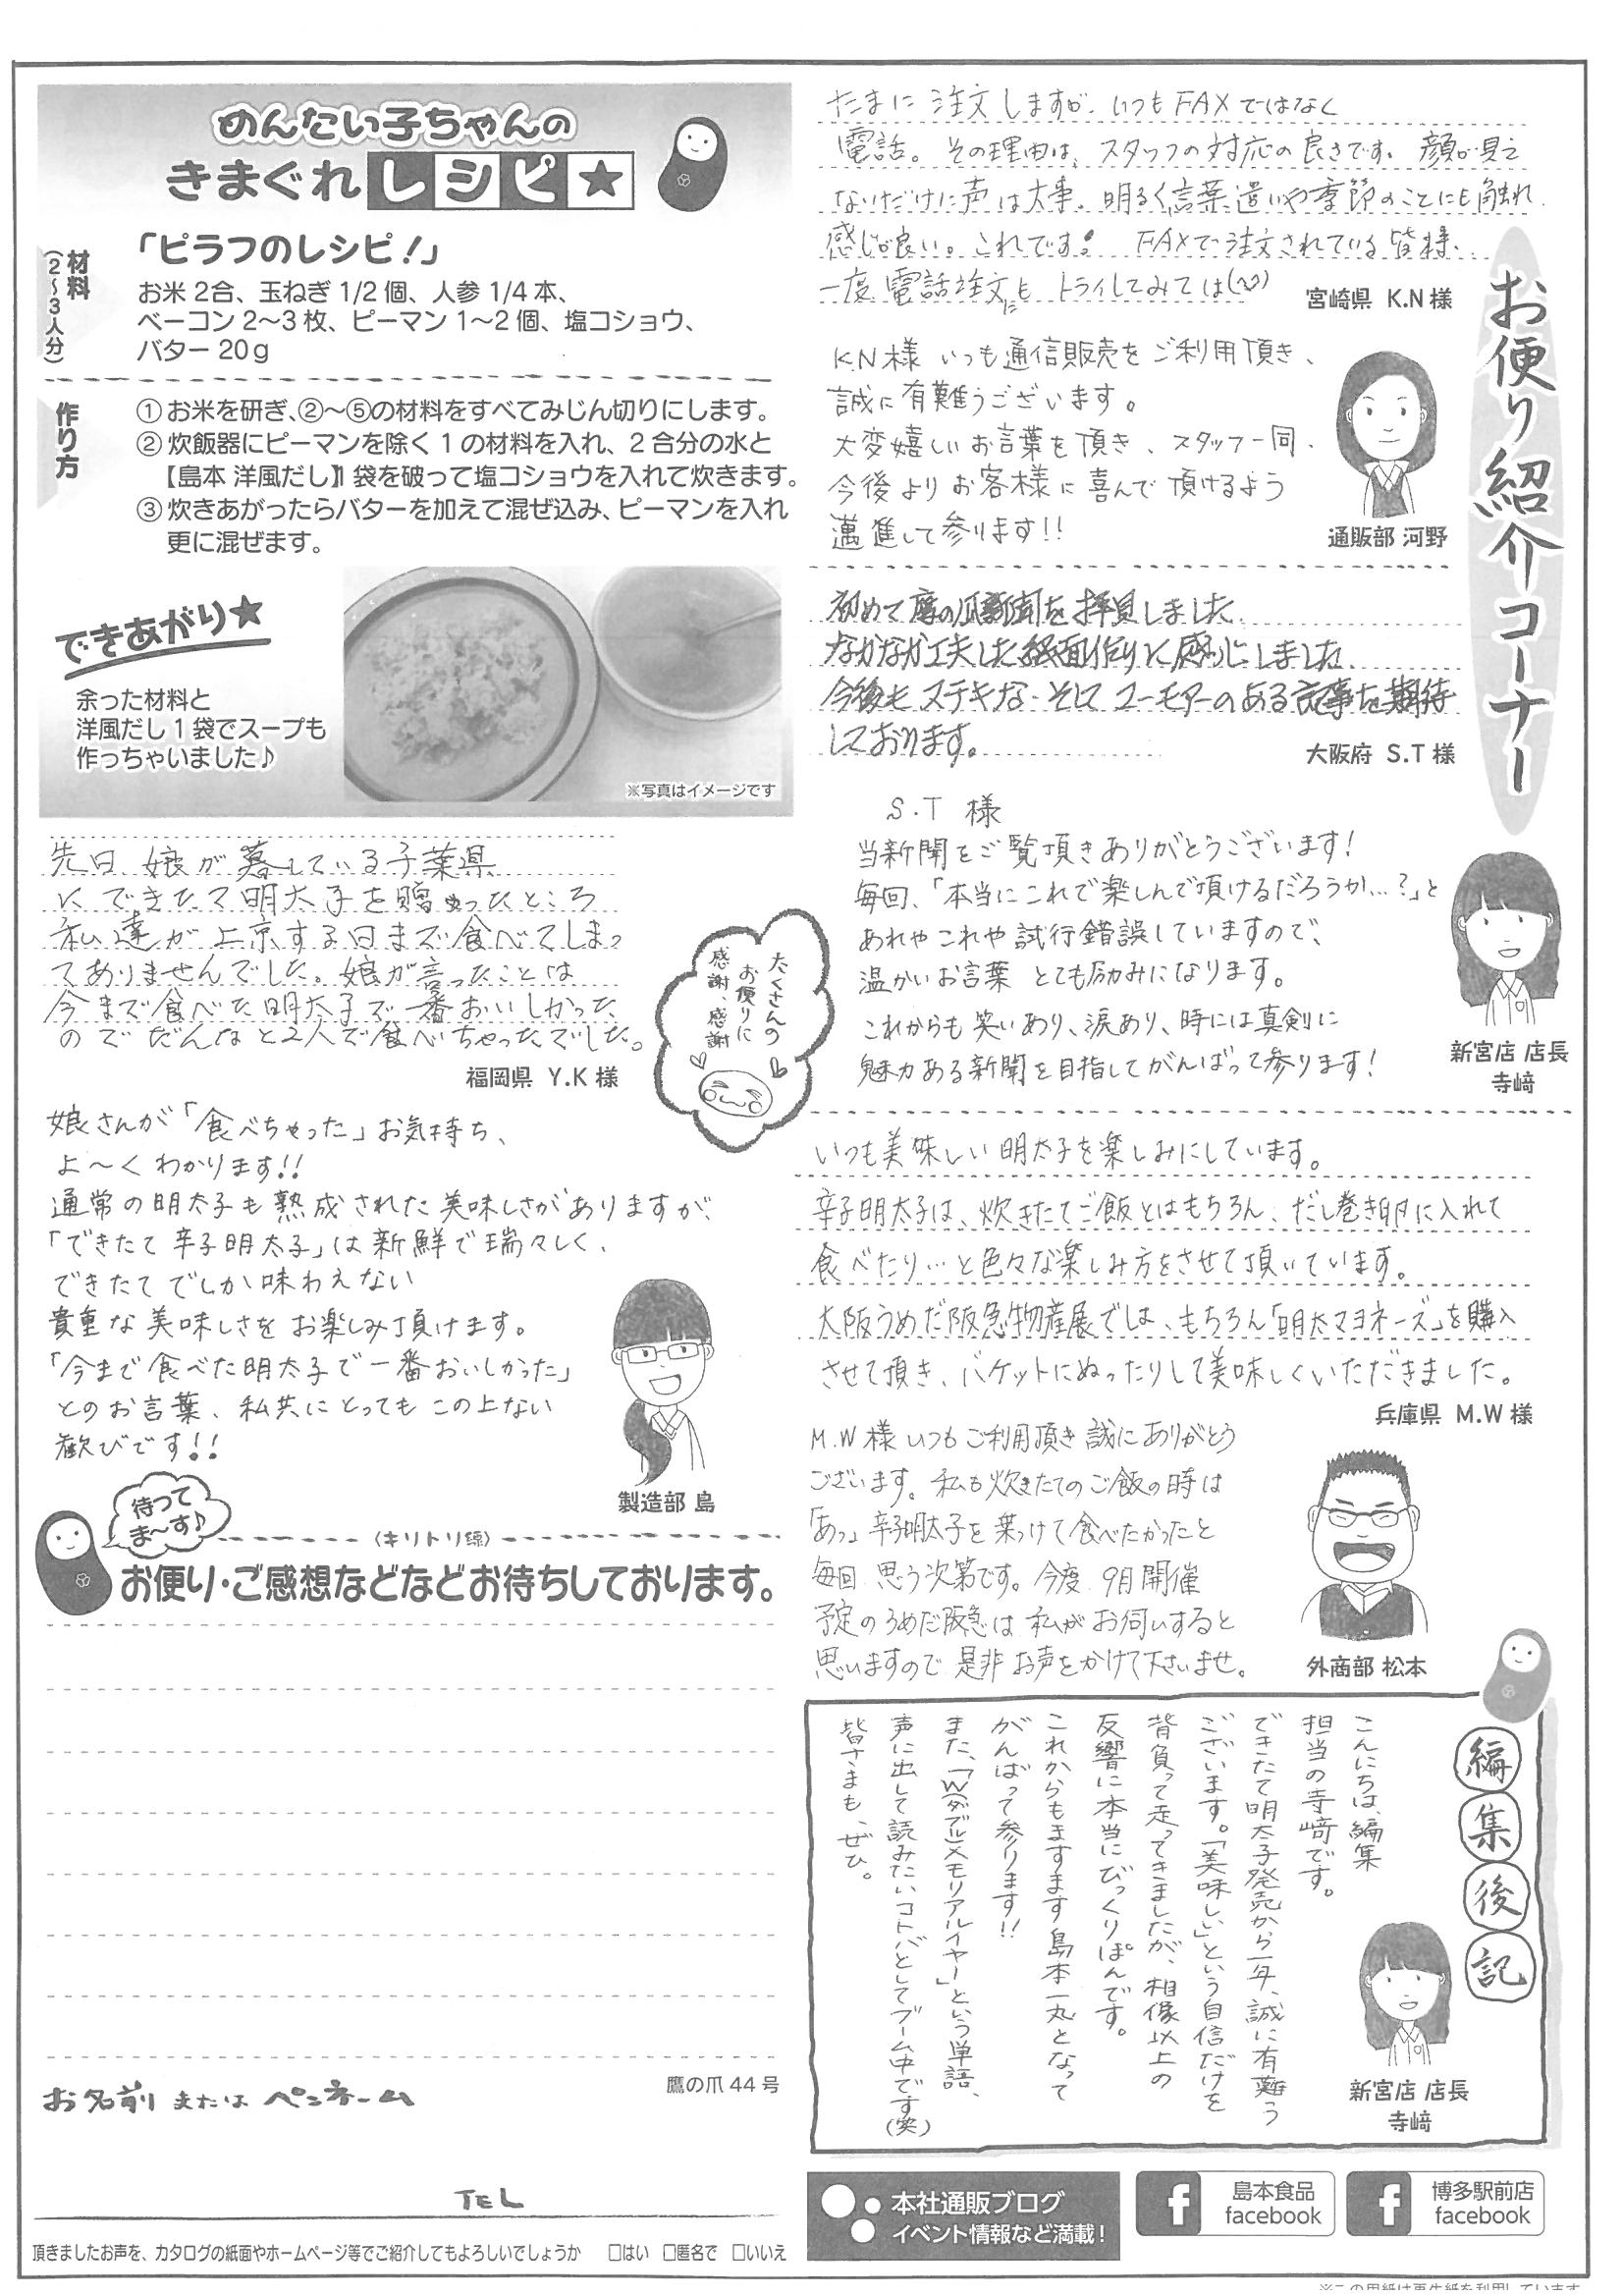 めんたい子ちゃんの
きまぐれレシピ★
材料
(2〜3人分)
「ピラフのレシピ！」
お米2合、玉ねぎ1/2個、人参1/4本、
ベーコン2〜3枚、ピーマン1〜2個、塩コショウ、
バター20g
作り方
①お米を研ぎ、②〜⑤の材料をすべてみじん切りにします。
②炊飯器にピーマンを除く1の材料を入れ、2合分の水と
【島本 洋風だし】1袋を破って塩コショウを入れて炊きます。
③炊きあがったらバターを加えて混ぜ込み、ピーマンを入れ
更に混ぜます。
できあがり★
余った材料と
洋風だし1袋でスープも
作っちゃいました♪
※写真はイメージです
先日、娘が暮している千葉県
にできたて明太子を贈ったところ
私達が上京する日まで食べてしまっ
てありませんでした。娘が言ったことは
今まで食べた明太子で一番おいしかった
のでだんなと2人で食べちゃったでした。
福岡県 Y.K様
娘さんが「食べちゃった」お気持ち、
よ〜くわかります!!
通常の明太子も熟成された美味しさがありますが、
「できたて辛子明太子」は新鮮で瑞々しく、
できたてでしか味わえない
貴重な美味しさをお楽しみ頂けます。
「今まで食べた明太子で一番おいしかった」
とのお言葉、私共にとってもこの上ない
歓びです!!
製造部 島
たくさんの
お便りに
感謝、感謝
待って
ま〜す♪
(キリトリ線)
お便り・ご感想などなどお待ちしております。
鷹の爪44号
お名前 または ペンネーム
TEL
頂きましたお声を、カタログの紙面やホームページ等でご紹介してもよろしいでしょうか □はい □匿名で □いいえ
お便り紹介コーナー
たまに注文しますが、いつもFAXではなく
電話。その理由は、スタッフの対応の良さです。顔が見え
ないだけに声は大事。明るく、言葉遣いや季節のことにも触れ
感じが良い。これです！ FAXで注文されている皆様、
一度電話注文にもトライしてみては(^^)
宮崎県 K.N様
K.N様 いつも通信販売をご利用頂き、
誠に有難うございます。
大変嬉しいお言葉を頂き、スタッフ一同、
今後よりお客様に喜んで頂けるよう
邁進して参ります!!
通販部 河野
初めて鷹の爪新聞を拝見しました。
なかなか工夫した紙面作りに感じしました
今後もステキな、そしてユーモアーのある記事を期待
しております。
大阪府 S.T様
S.T 様
当新聞をご覧頂きありがとうございます！
毎回、「本当にこれで楽しんで頂けるだろうか…？」と
あれやこれや試行錯誤していますので、
温かいお言葉とても励みになります。
これからも笑いあり、涙あり、時には真剣に
魅力ある新聞を目指してがんばって参ります！
新宮店 店長
寺﨑
いつも美味しい明太子を楽しみにしています。
辛子明太子は、炊きたてご飯とはもちろん、だし巻き卵に入れて
食べたり…と色々な楽しみ方をさせて頂いています。
大阪うめだ阪急物産展でしは、もちろん「明太マヨネーズ」を購入
させて頂き、バケットにぬったりして美味しくいただきました。
兵庫県 M.W様
M.W様 いつもご利用頂き誠にありがとう
ございます。私も炊きたてのご飯の時は
「あっ」辛子明太子を乗っけて食べたかったと
毎回 思う次第です。今度 9月開催
予定のうめだ阪急は私がお伺いすると
思いますので是非お声をかけて下さいませ。
外商部 松本
編集後記
こんにちは、編集
担当の寺﨑です。
できたて明太子発売から一年、誠に有難う
ございます。「美味しい」という自信だけを
背負って走ってきましたが、想像以上の
反響に本当にびっくりぽんです。
これからもますます島本一丸となって
がんばって参ります!!
また、「W(ダブル)メモリアルイヤー」という単語、
声に出して読みたいコトバとしてブーム中です(笑)
皆さまも、ぜひ。
新宮店 店長
寺﨑
本社通販ブログ
イベント情報など満載！
島本食品
facebook
博多駅前店
facebook